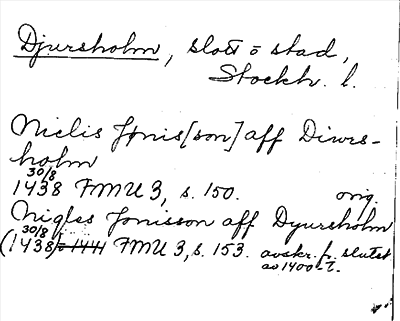 Djursholm, slott o stad,
Stockh. l.
Niclis Jønis[son] aff Diurs-
holm
30/8
1438 FMU 3, s. 150. orig.
Nigles Jonisson aff Dyursholm
30/8
(1438) FMU 3, s. 153. avskr. fr. slutet
av 1400-t.